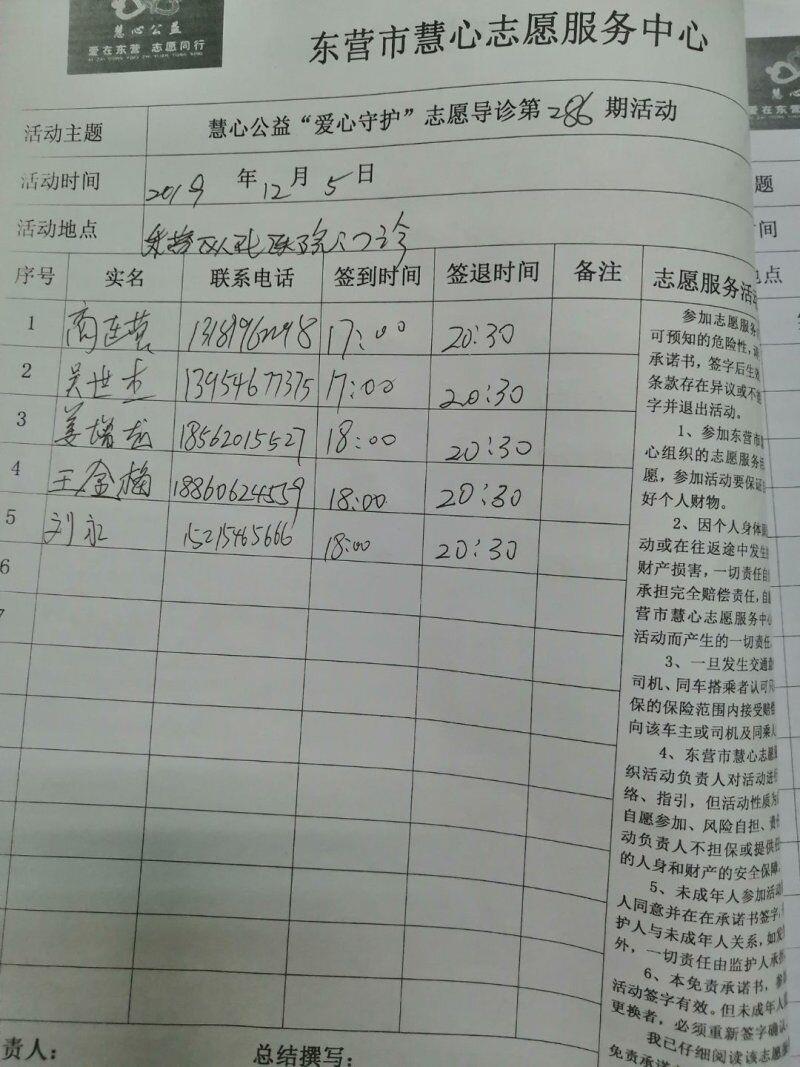 慧心公益
爱在东营 志愿同行
东营市慧心志愿服务中心
活动主题 慧心公益“爱心守护”志愿导诊第286期活动
活动时间 2019年12月5日
活动地点 门诊
序号 实名 联系电话 签到时间 签退时间 备注 志愿服务活
1 17:00 20:30
2 吴世杰 13954677375 17:00 20:30
3 姜增 18562015527 18:00 20:30
4 王金梅 18860624559 18:00 20:30
5 刘永 15215465666 18:00 20:30
6
7
参加志愿服务
可预知的危险性,
承诺书,签字后生效
条款存在异议或不
字并退出活动。
1、参加东营市
心组织的志愿服务
愿,参加活动要保证
好个人财物。
2、因个人身体
动或在往返途中发生
财产损害,一切责任自
承担完全赔偿责任,自
营市慧心志愿服务中心
活动而产生的一切责任
3、一旦发生交通
司机、同车搭乘者认可
保的保险范围内接受赔偿
向该车主或司机及同乘人
4、东营市慧心志愿
织活动负责人对活动进行
络、指引,但活动性质为
自愿参加、风险自担、责
动负责人不担保或提供任
的人身和财产的安全保障
5、未成年人参加活动
人同意并在在承诺书签字,
护人与未成年人关系,如
外,一切责任由监护人承
6、本免责承诺书,参
活动签字有效。但未成年人
更换者,必须重新签字确认
我已仔细阅读该志愿
免责承诺
责人: 总结撰写:
爱在东营
题
间
地点